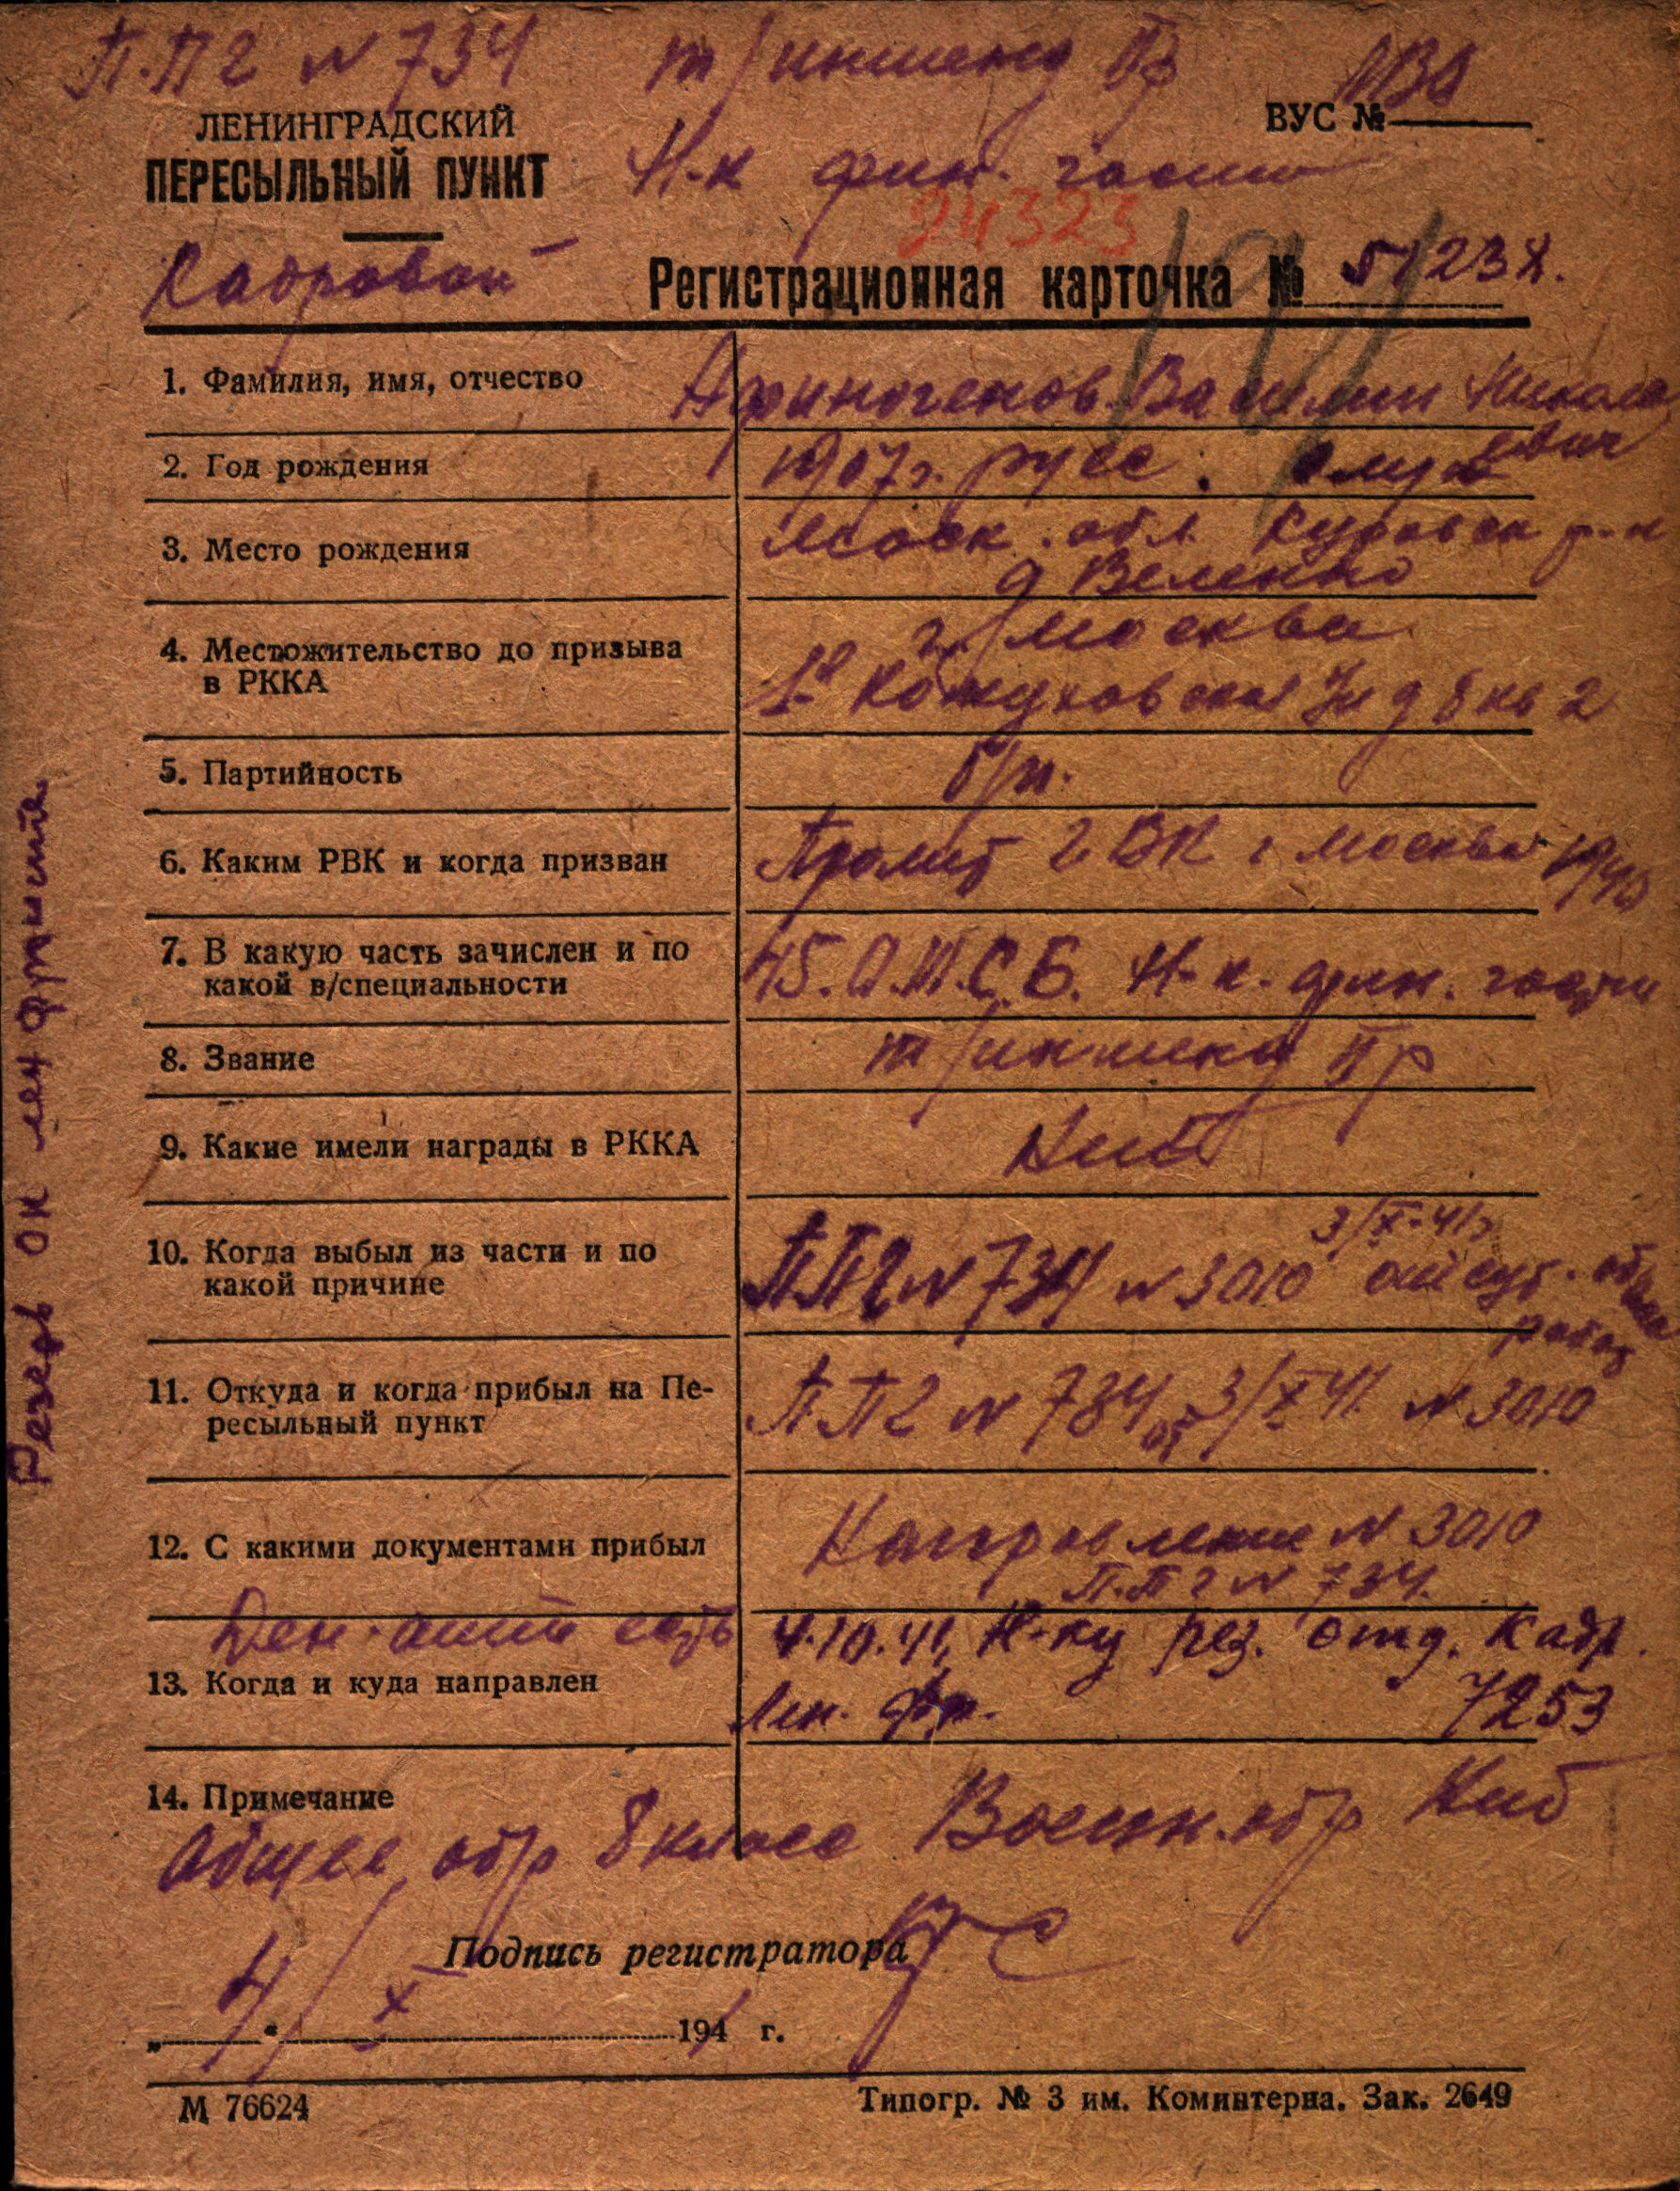 П.П г N 734 т/интенд IIр
ЛЕНИНГРАДСКИЙ
ПЕРЕСЫЛЬНЫЙ ПУНКТ
ВУС №
Н-к фин. части
24323
Кадровой
Регистрационная карточка № 51238.
1. Фамилия, имя, отчество Афиногенов Василий Николаевич
2. Год рождения 1907 г. русс.
3. Место рождения Моск. обл. Куровск р-н
д
4. Местожительство до призыва г. Москва
в РККА 1я Кожуховская Ул д 8 кв 2
5. Партийность б/п.
6. Каким РВК и когда призван Пролет ГВК г Москва
7. В какую часть зачислен и по
какой в/специальности 45. Н-к. фин. части
8. Звание т/интенд II р
9. Какие имели награды в РККА Нет
10. Когда выбыл из части и по 3/X-41г
какой причине ППГ N 734 N 3010
11. Откуда и когда прибыл на Пе-
ресыльный пункт П.П Г N 734 от 3/X 41 N 3010
12. С какими документами прибыл Направление N 3010
П.П г N 734.
Ден. атт есть 4.10.41, Н-ку рез. отд. кадр.
13. Когда и куда направлен Лен. фр. 7253
14. Примечание
Общее обр 8 класс Военн. обр Нет
Подпись регистратора
„4“ X 1941 г.
М 76624
Типогр. № 3 им. Коминтерна. Зак. 2649
Резерв ОК Лен фронта